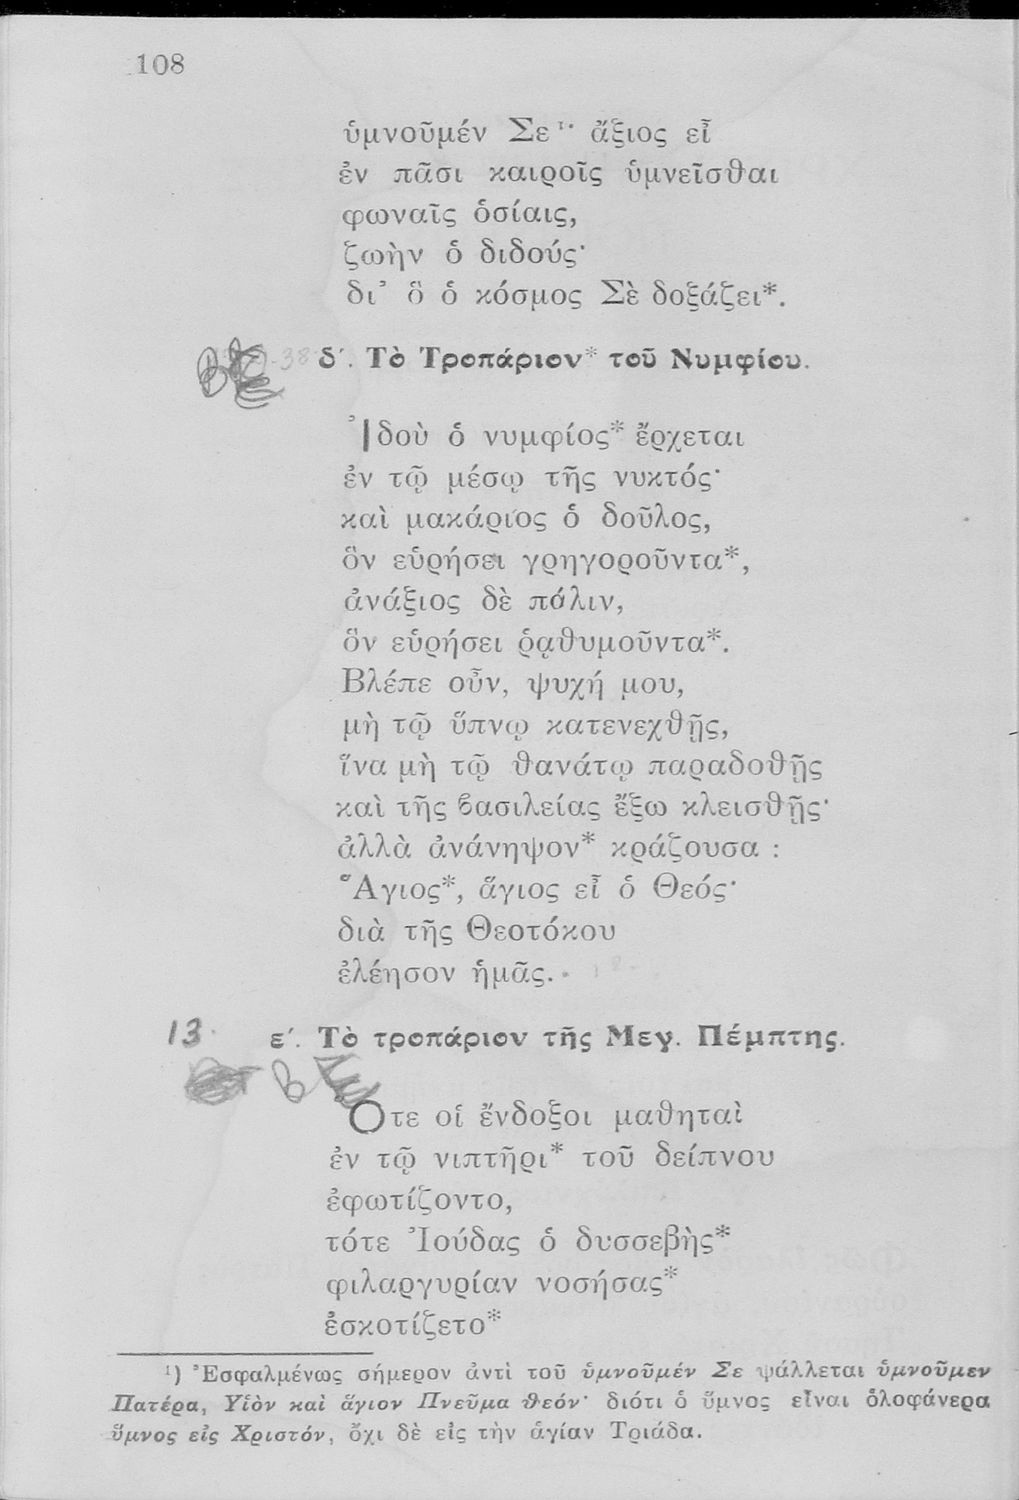 108
ὑμνοῦμέν Σε¹· ἄξιος εἶ
ἐν πᾶσι καιροῖς ὑμνεῖσθαι
φωναῖς ὁσίαις,
ζωὴν ὁ διδούς·
δι᾽ ὃ ὁ κόσμος Σὲ δοξάζει*.
δ΄. Τὸ Τροπάριον* τοῦ Νυμφίου.
Ἰδοὺ ὁ νυμφίος* ἔρχεται
ἐν τῷ μέσῳ τῆς νυκτός·
καὶ μακάριος ὁ δοῦλος,
ὃν εὑρήσει γρηγοροῦντα*,
ἀνάξιος δὲ πάλιν,
ὃν εὑρήσει ῥᾳθυμοῦντα*.
Βλέπε οὖν, ψυχή μου,
μὴ τῷ ὕπνῳ κατενεχθῇς,
ἵνα μὴ τῷ θανάτῳ παραδοθῇς
καὶ τῆς βασιλείας ἔξω κλεισθῇς·
ἀλλὰ ἀνάνηψον* κράζουσα :
Ἅγιος*, ἅγιος εἶ ὁ Θεός·
διὰ τῆς Θεοτόκου
ἐλέησον ἡμᾶς.
13. ε΄. Τὸ τροπάριον τῆς Μεγ. Πέμπτης.
Ὅτε οἱ ἔνδοξοι μαθηταὶ
ἐν τῷ νιπτῆρι* τοῦ δείπνου
ἐφωτίζοντο,
τότε Ἰούδας ὁ δυσσεβὴς*
φιλαργυρίαν νοσήσας*
ἐσκοτίζετο*
¹) Ἐσφαλμένως σήμερον ἀντὶ τοῦ ὑμνοῦμέν Σε ψάλλεται ὑμνοῦμεν
Πατέρα, Υἱὸν καὶ ἅγιον Πνεῦμα θεόν· διότι ὁ ὕμνος εἶναι ὁλοφάνερα
ὕμνος εἰς Χριστόν, ὄχι δὲ εἰς τὴν ἁγίαν Τριάδα.